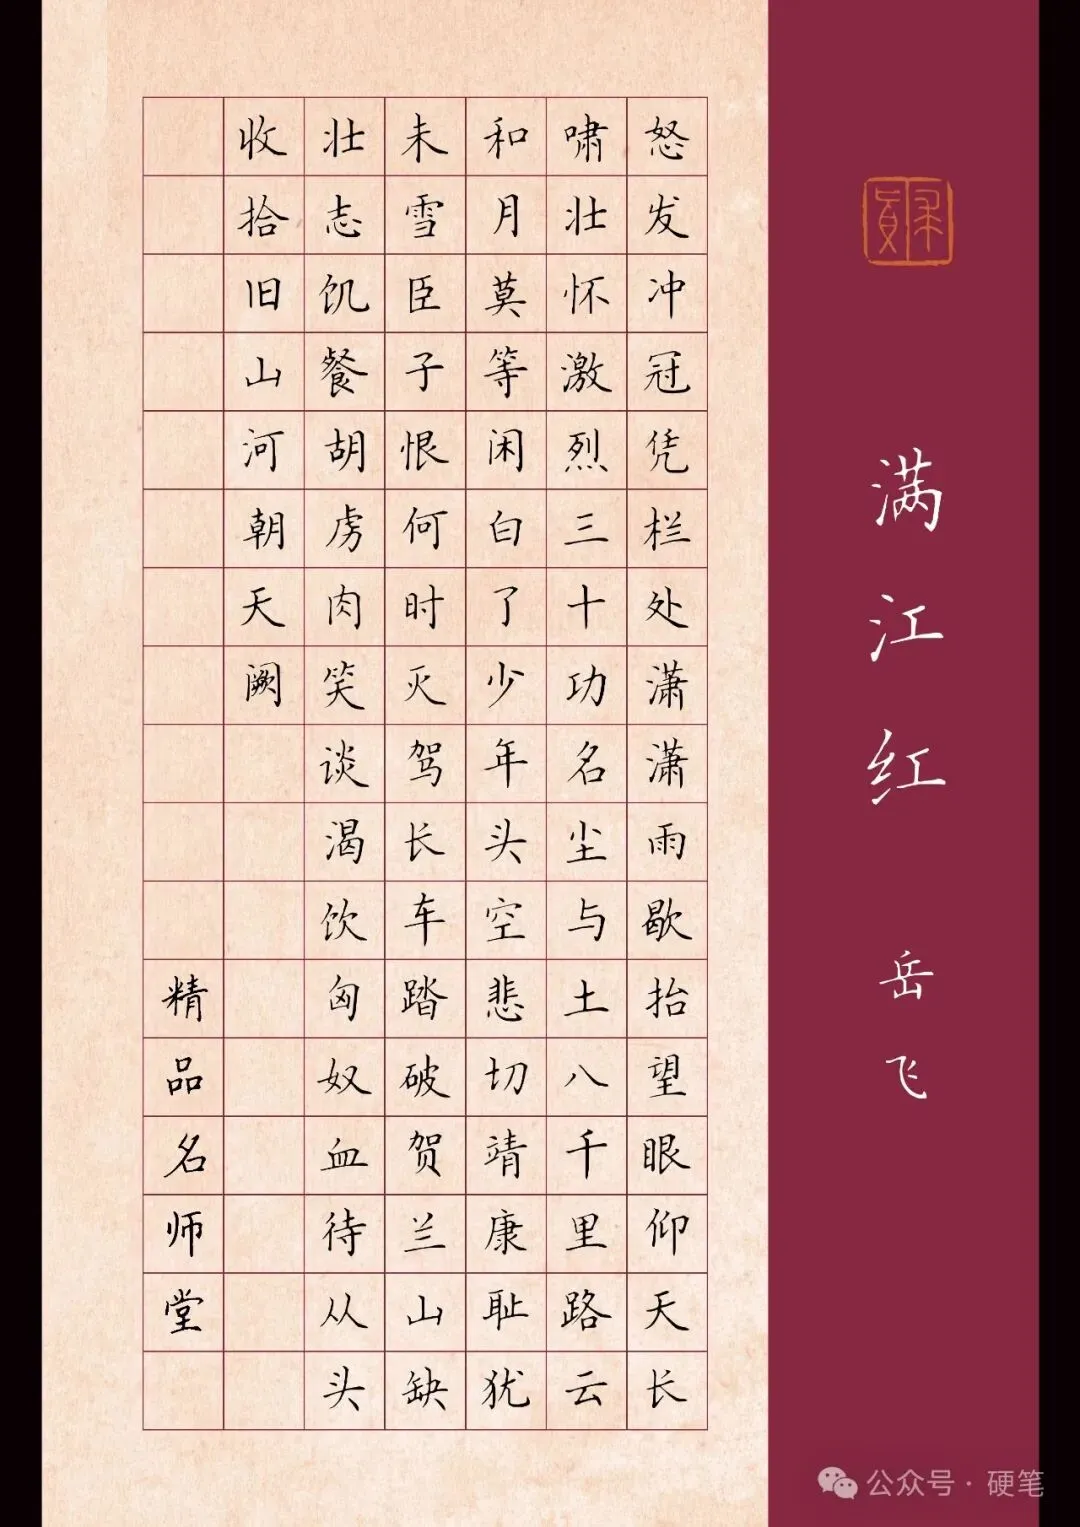 满江红
岳飞
怒发冲冠凭栏处潇潇雨歇抬望眼仰天长
啸壮怀激烈三十功名尘与土八千里路云
和月莫等闲白了少年头空悲切靖康耻犹
未雪臣子恨何时灭驾长车踏破贺兰山缺
壮志饥餐胡虏肉笑谈渴饮匈奴血待从头
收拾旧山河朝天阙
精品名师堂
公众号·硬笔